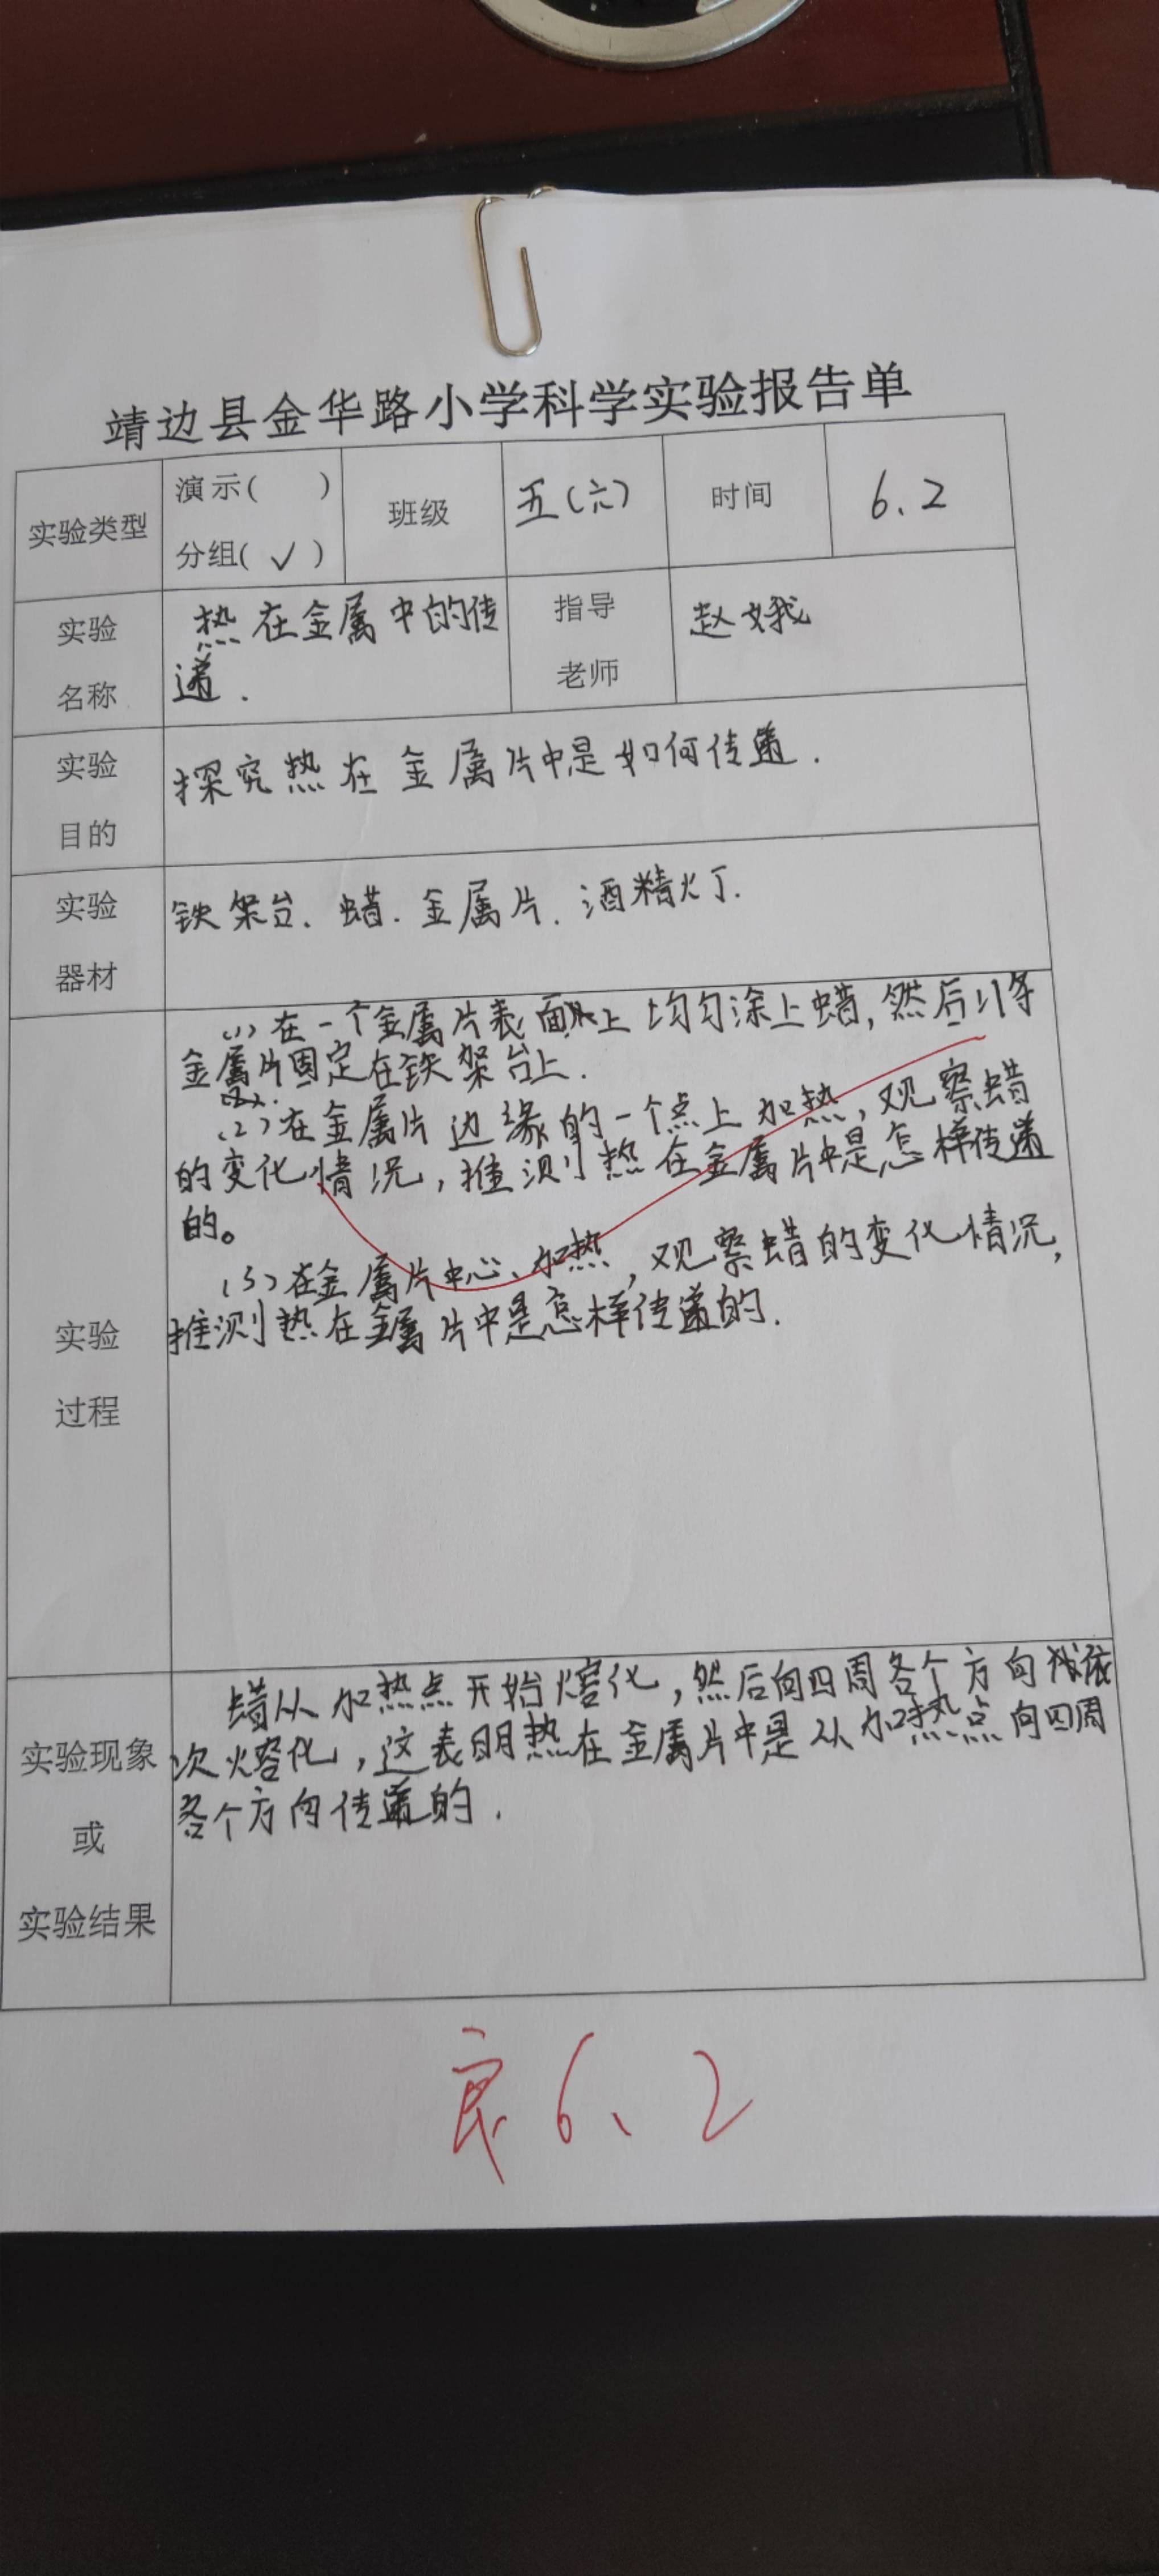 靖边县金华路小学科学实验报告单
实验类型
演示( )
分组( ✓ )
班级
五(六)
时间
6、2
实验
名称
热在金属中的传
递.
指导
老师
赵娥
实验
目的
探究热在金属片中是如何传递.
实验
器材
铁架台、蜡.金属片.酒精灯.
实验
过程
(1)在一个金属片表面上均匀涂上蜡,然后将
金属片固定在铁架台上.
(2)在金属片边缘的一个点上加热,观察蜡
的变化情况,推测热在金属片中是怎样传递
的。
(3)在金属片中心、加热,观察蜡的变化情况,
推测热在金属片中是怎样传递的.
实验现象
或
实验结果
蜡从加热点开始熔化,然后向四周各个方向依
次熔化,这表明热在金属片中是从加热点向四周
各个方向传递的.
良 6、2